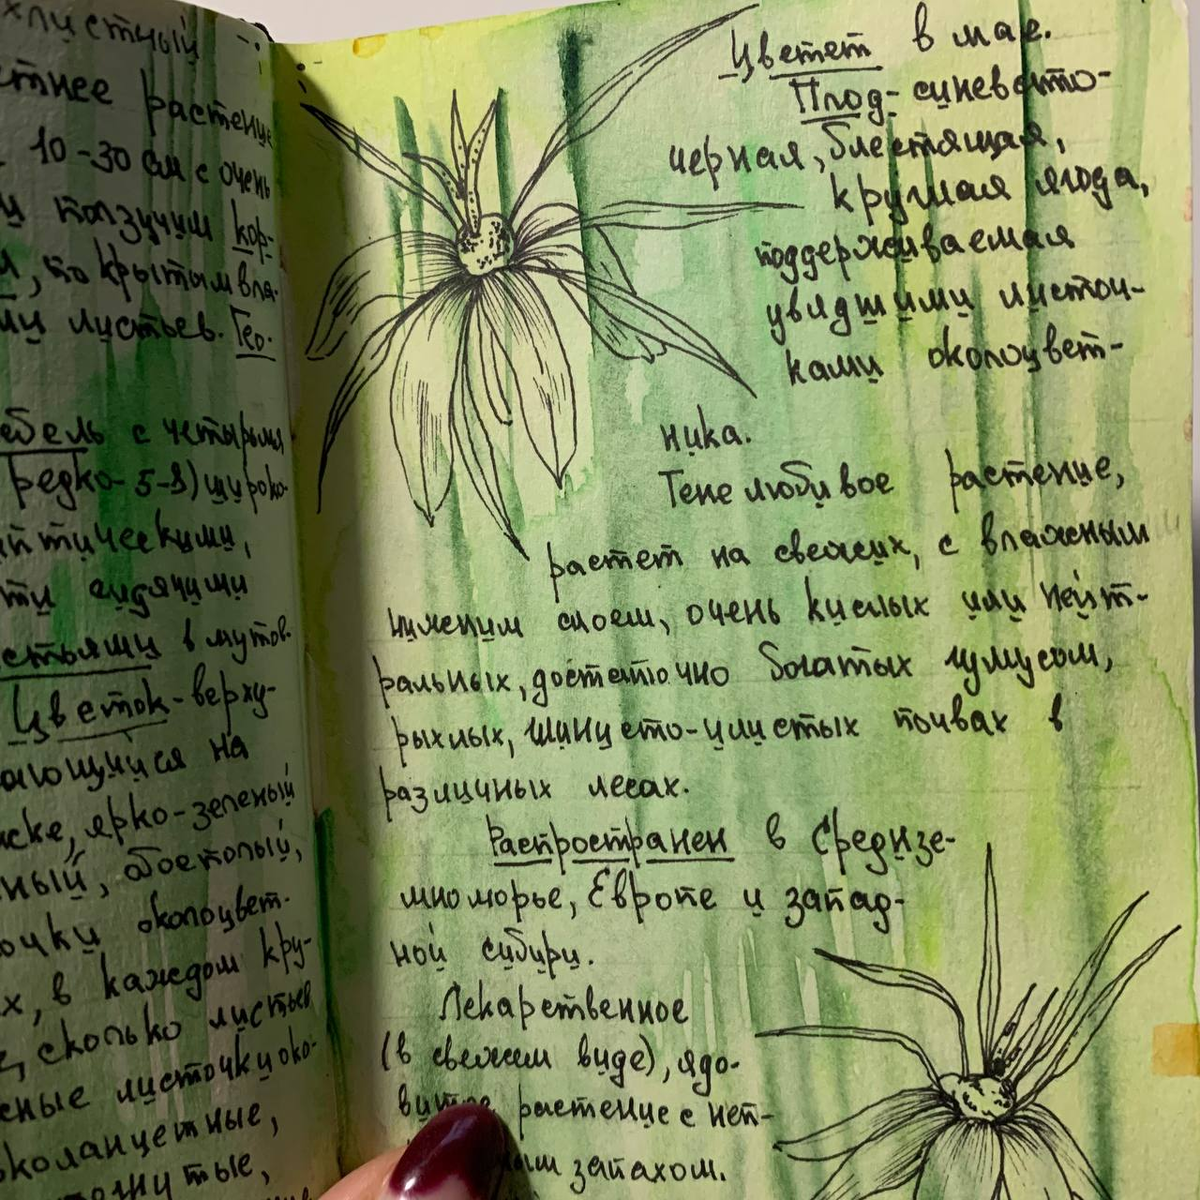 хлистный
етнее растение
10-30 см с очень
и ползучим кор-
м, покрытым вла-
ми листьев. Гео-
ебель с четырьмя
редко-5-8) широко-
иптическими,
ти сидячими
стьями в мутов-
Цветок-верху-
ающийся на
ске, ярко-зеленый
ный, обоеполый,
очки околоцвет-
х, в каждом кру-
е, сколько листьев
сные листочки око-
коланцетные,
Цветет в мае.
Плод- синевато-
черная, блестящая,
круглая ягода,
поддерживаемая
увядшими листоч-
ками околоцвет-
ника.
Тенелюбивое растение,
растет на свежих, с влажным
нижним слоем, очень кислых или нейт-
ральных, достаточно богатых гумусом,
рыхлых, глинисто-илистых почвах в
различных лесах.
Распространен в Средизе-
мноморье, Европе и запад-
ной сибири.
Лекарственное
(в свежем виде), ядо-
витое растение с неп-
ым запахом.